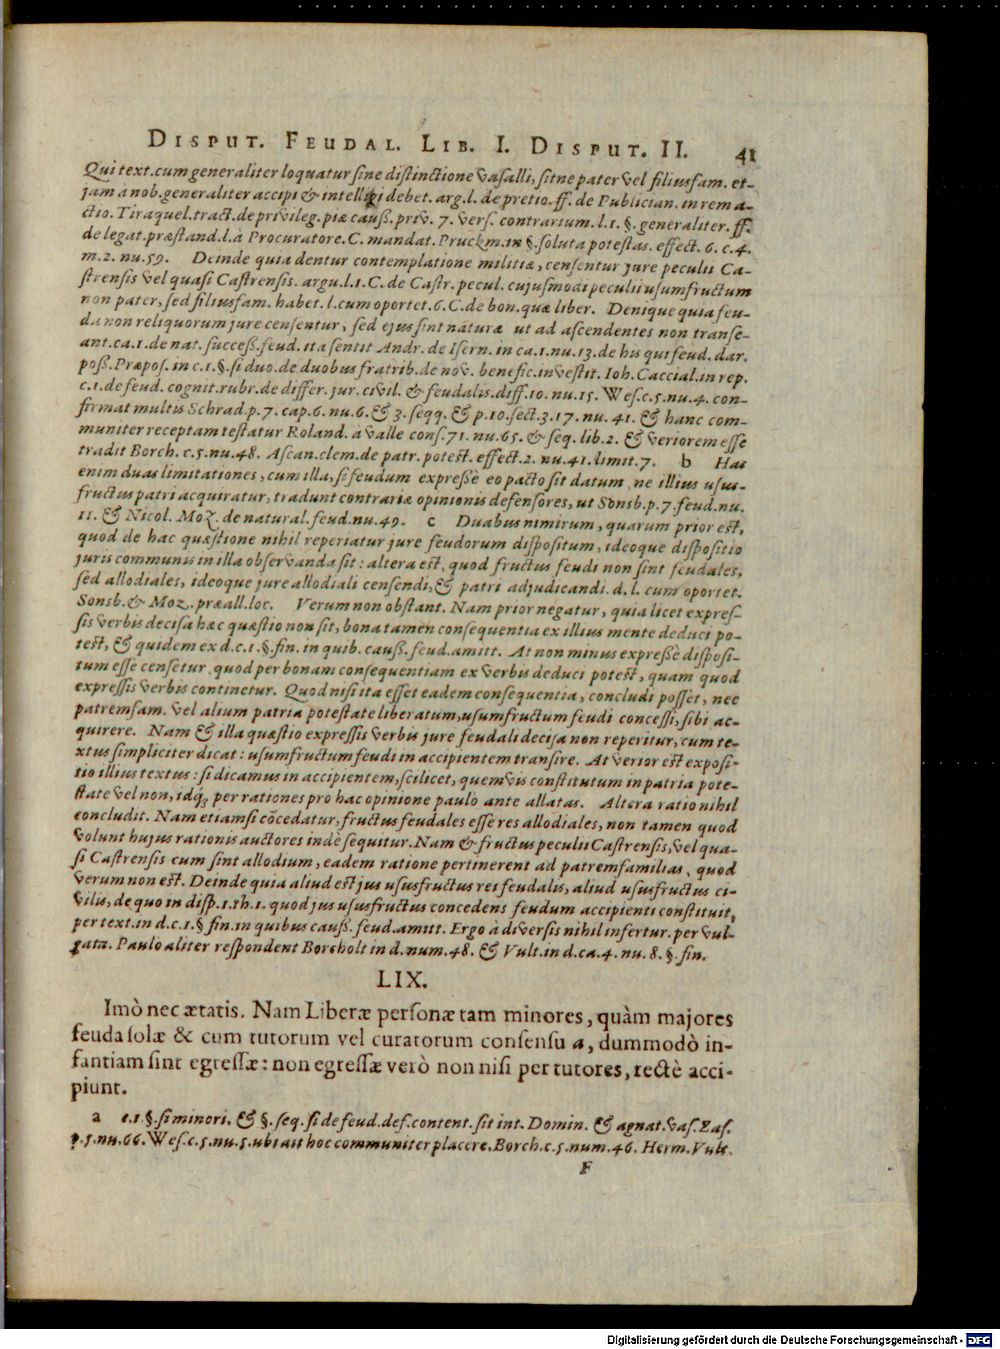 DISPUT. FEUDAL. LIB. I. DISPUT. II. 41
Qui text. cum generaliter loquatur sine distinctione vasalli, sitne pater vel filiusfam. et-
jam à nob. generaliter accipi & intelligi debet. arg. l. de pretio. ff. de Publician. in rem a-
ctio. Tiraquel. tract. de privileg. piæ cauß. priv. 7. vers. contrarium. l. 1. §. generaliter. ff.
de legat. præstand. l. à Procuratore. C. mandat. Pruckm. in §. soluta potestas. effect. 6. c. 4.
m. 2. nu. 59. Deinde quia dentur contemplatione militiæ, censentur jure peculii Ca-
strensis vel quasi Castrensis. argu. l. 1. C. de Castr. pecul. cujusmodi peculii usumfructum
non pater, sed filiusfam. habet. l. cum oportet. 6. C. de bon. quæ liber. Denique quia feu-
da non reliquorum jure censentur, sed ejus sint naturæ ut ad ascendentes non transe-
ant. ca. 1. de nat. succeß. feud. ita sentit Andr. de Isern. in ca. 1. nu. 13. de his qui feud. dar.
poß. Præpos. in c. 1. §. si duo. de duobus fratrib. de nov. benefic. investit. Ioh. Caccial. in rep.
c. 1. de feud. cognit. rubr. de differ. jur. civil. & feudalis. diff. 10. nu. 15. Wes. c. 5. nu. 4. con-
firmat multis Schrad. p. 7. cap. 6. nu. 6. & 3. seqq. & p. 10. sect. 3. 17. nu. 41. & hanc com-
muniter receptam testatur Roland. à valle cons. 71. nu. 65. & seq. lib. 2. & veriorem esse
tradit Borch. c. 5. nu. 48. Ascan. clem. de patr. potest. effect. 2. nu. 41. limit. 7. b Has
enim duas limitationes, cum illa, si feudum expreßè eo pacto sit datum, ne illius usus-
fructus patri acquiratur, tradunt contrariæ opinionis defensores, ut Sonsb. p. 7. feud. nu.
11. & Nicol. Moz. de natural. feud. nu. 49. c Duabus nimirum, quarum prior est,
quod de hac quæstione nihil reperiatur jure feudorum dispositum, ideoque dispositio
juris communis in illa observanda sit: altera est, quod fructus feudi non sint feudales,
sed allodiales, ideoque jure allodiali censendi, & patri adjudicandi. d. l. cum oportet.
Sonsb. & Moz. præall. loc. Verum non obstant. Nam prior negatur, quia licet expres-
sis verbis decisa hæc quæstio non sit, bona tamen consequentia ex illius mente deduci po-
test, & quidem ex d. c. 1. §. fin. in quib. cauß. feud. amitt. At non minus expreßè disposi-
tum esse censetur quod per bonam consequentiam ex verbis deduci potest, quam quod
expressis verbis continetur. Quod nisi ita esset eadem consequentia, concludi posset, nec
patremfam. vel alium patria potestate liberatum, usumfructum feudi concessi, sibi ac-
quirere. Nam & illa quæstio expressis verbis jure feudali decisa non reperitur, cum te-
xtus simpliciter dicat: usumfructum feudi in accipientem transire. At verior est exposi-
tio illius textus: si dicamus in accipientem, scilicet, quemvis constitutum in patria pote-
state vel non, idq; per rationes pro hac opinione paulo ante allatas. Altera ratio nihil
concludit. Nam etiamsi cõcedatur, fructus feudales esse res allodiales, non tamen quod
volunt hujus rationis auctores indè sequitur. Nam & fructus peculii Castrensis, vel qua-
si Castrensis cum sint allodium, eadem ratione pertinerent ad patremfamilias, quod
verum non est. Deinde quia aliud est jus ususfructus rei feudalis, aliud ususfructus ci-
vilis, de quo in disp. 1. th. 1. quod jus ususfructus concedens feudum accipienti constituit,
per text. in d. c. 1. § fin. in quibus cauß. feud. amitt. Ergo à diversis nihil infertur. per vul-
gata. Paulo aliter respondent Borcholt in d. num. 48. & Vult. in d. ca. 4. nu. 8. §. fin.
LIX.
Imò nec ætatis. Nam Liberæ personæ tam minores, quàm majores
feuda solæ & cum tutorum vel curatorum consensu a, dummodò in-
fantiam sint egressæ: non egressæ verò non nisi per tutores, rectè acci-
piunt.
a c. 1. §. si minori. & §. seq. si de feud. def. content. sit int. Domin. & agnat. vas. Zas.
p. 5. nu. 66. Wes. c. 5. nu. 5. ubi ait hoc communiter placere. Borch. c. 5. num. 46. Herm. Vult.
F
Digitalisierung gefördert durch die Deutsche Forschungsgemeinschaft - DFG